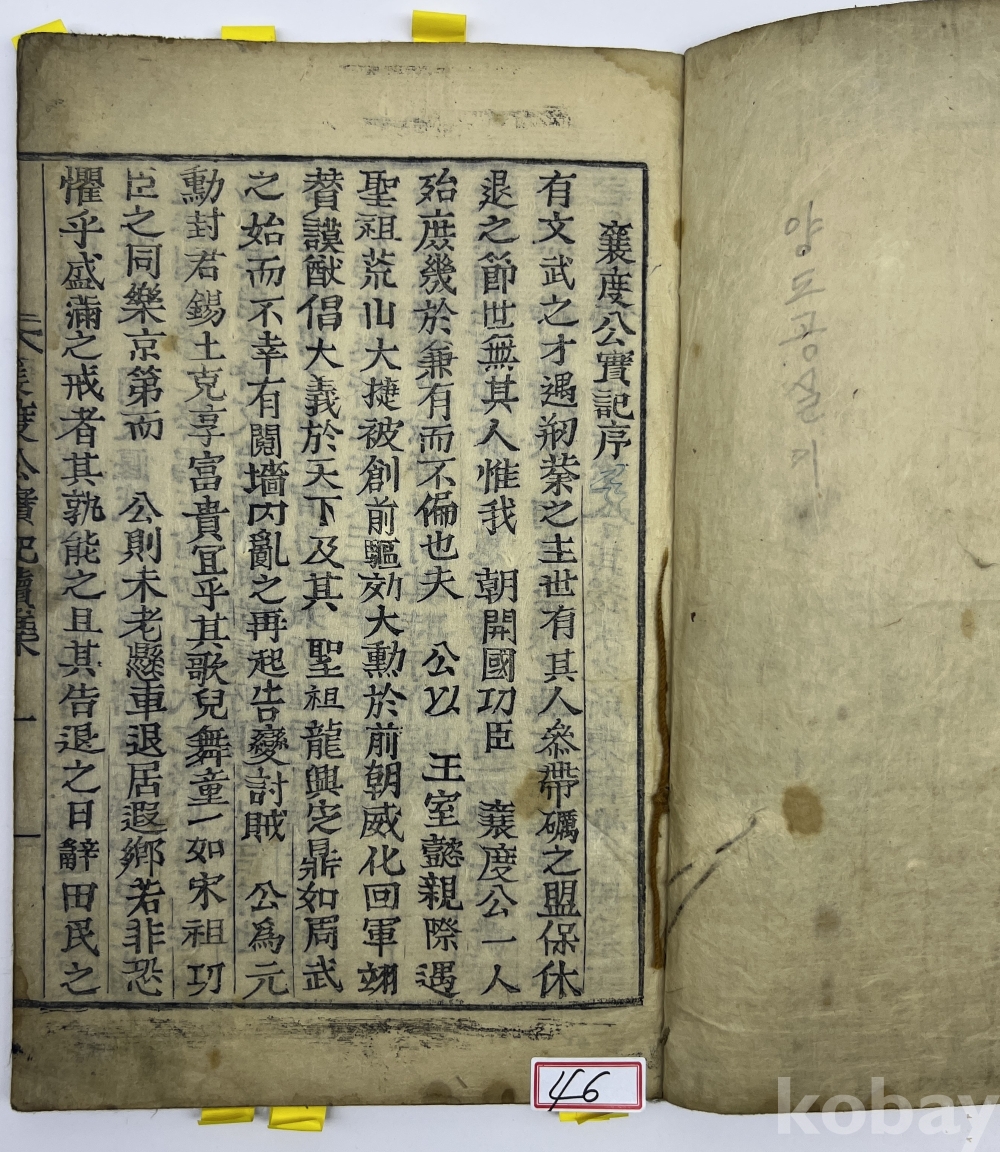 양도공실기
襄度公實記序
有文武之才遇刱業之主世有其人叅帶礪之盟保休
退之節世無其人惟我 朝開國功臣 襄度公一人
殆庶幾於兼有而不偏也夫 公以 王室懿親際遇
聖祖荒山大捷被創前驅効大勳於前朝威化回軍翊
賛謨猷倡大義於天下及其 聖祖龍興定鼎如周武
之始而不幸有鬩墻內亂之再起告變討賊 公爲元
勳封君錫土克享富貴宜乎其歌兒舞童一如宋祖功
臣之同樂京第而 公則未老懸車退居遐鄉若非恐
懼乎盛滿之戒者其孰能之且其告退之日辭田民之
襄度公實記 一
46
kobay